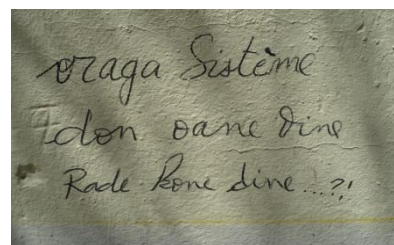 vraga Sistème
don oane dine
Rade kone dine...?!